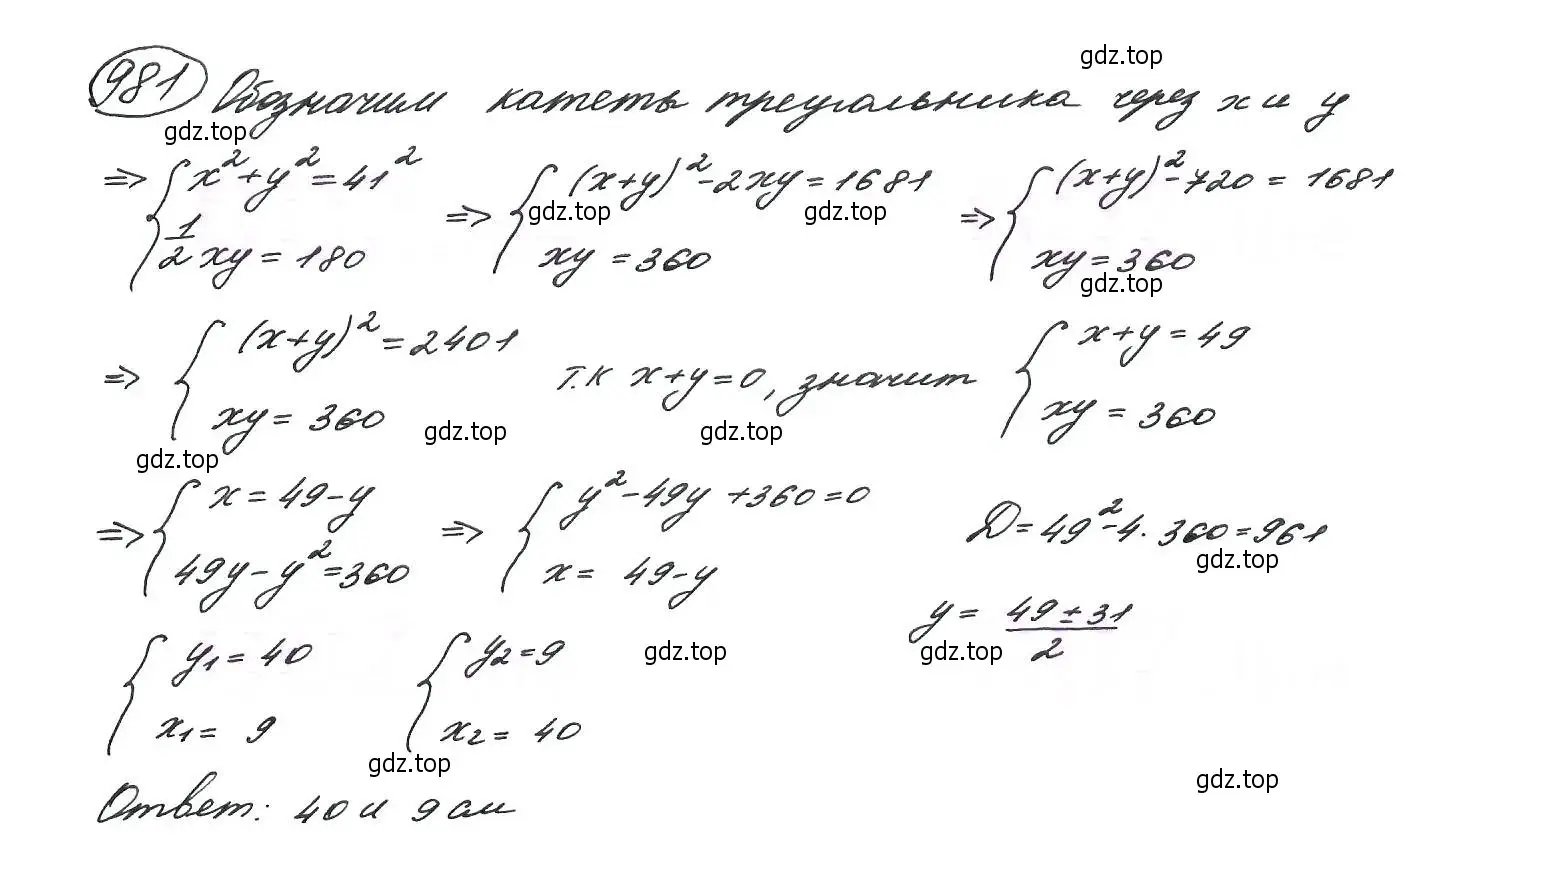 gdz.top
981 Обозначим катеты треугольника через x и y
gdz.top
⇒ { x² + y² = 41² ; 1/2 xy = 180 ⇒ { (x+y)² - 2xy = 1681 ; xy = 360 ⇒ { (x+y)² - 720 = 1681 ; xy = 360
gdz.top gdz.top
gdz.top
⇒ { (x+y)² = 2401 ; xy = 360 т.к x+y=0, значит { x+y = 49 ; xy = 360
gdz.top gdz.top
gdz.top
⇒ { x = 49-y ; 49y - y² = 360 ⇒ { y² - 49y + 360 = 0 ; x = 49-y D = 49² - 4 · 360 = 961
gdz.top
y = (49 ± 31)/2
gdz.top gdz.top
{ y₁ = 40 ; x₁ = 9 { y₂ = 9 ; x₂ = 40
gdz.top
gdz.top
Ответ: 40 и 9 см